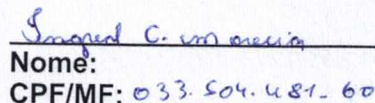 Ingrid C.
Nome:
CPF/MF: 033.504.481-60